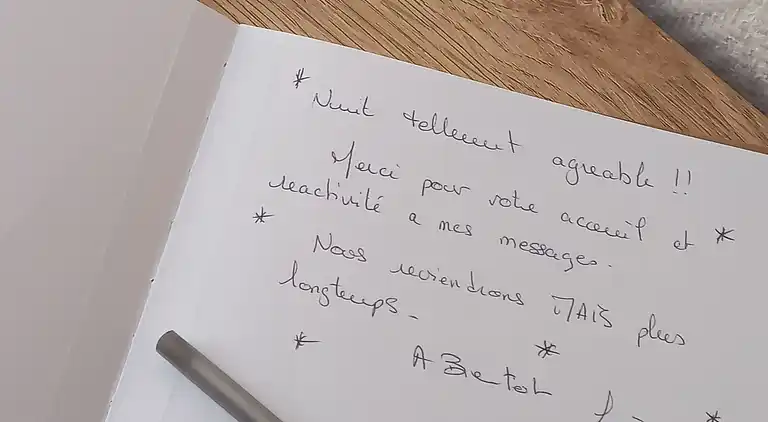 * Nuit tellement agreable !!
Merci pour votre accueil et *
reactivité a mes messages.
* Nous reviendrons MAIS plus
longtemps.
* A Bietot *
*